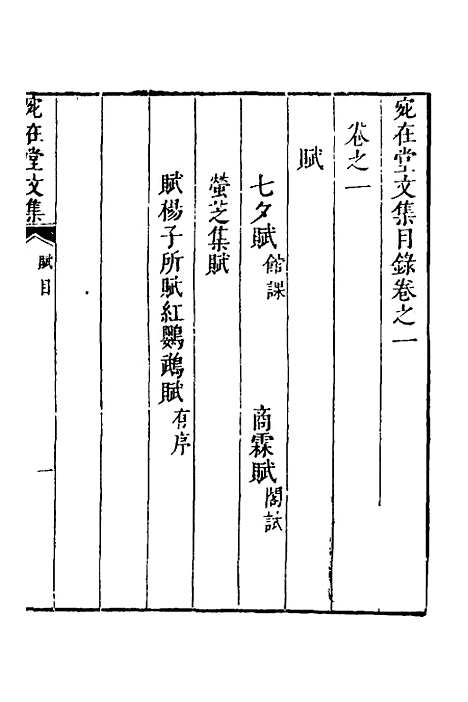 宛在堂文集目錄卷之一
卷之一
賦
七夕賦館課 商霖賦閣試
螢芝集賦
賦楊子所賦紅鸚鵡賦有序
宛在堂文集 賦目 一